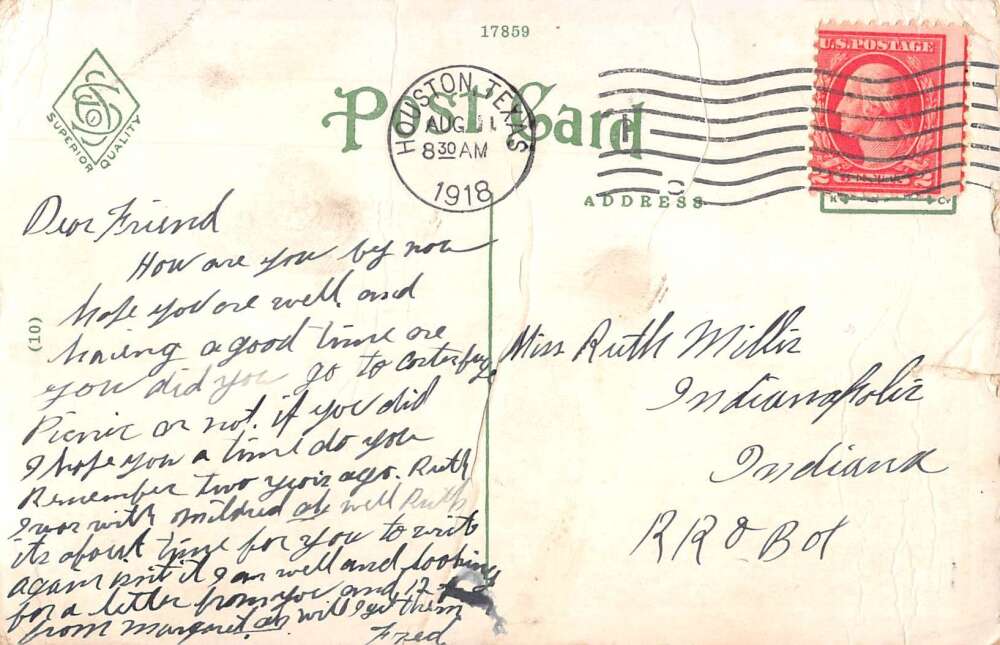 17859
SUPERIOR QUALITY
Post Card
HOUSTON, TEXAS
AUG 1
8 30 AM
1918
U.S. POSTAGE
ADDRESS
(10)
Dear Friend
How are you by now
hope you are well and
having a good time are
you did you go to
Picnic or not. if you did
I hope you a time do you
Remember two years ago. Ruth
I was with Mildred ah well Ruth
its about time for you to write
again isnt it I am well and looking
for a letter from you and 12
from Margaret. ah will I get them
Fred
Miss Ruth Millis
Indianapolis
Indiana
R R